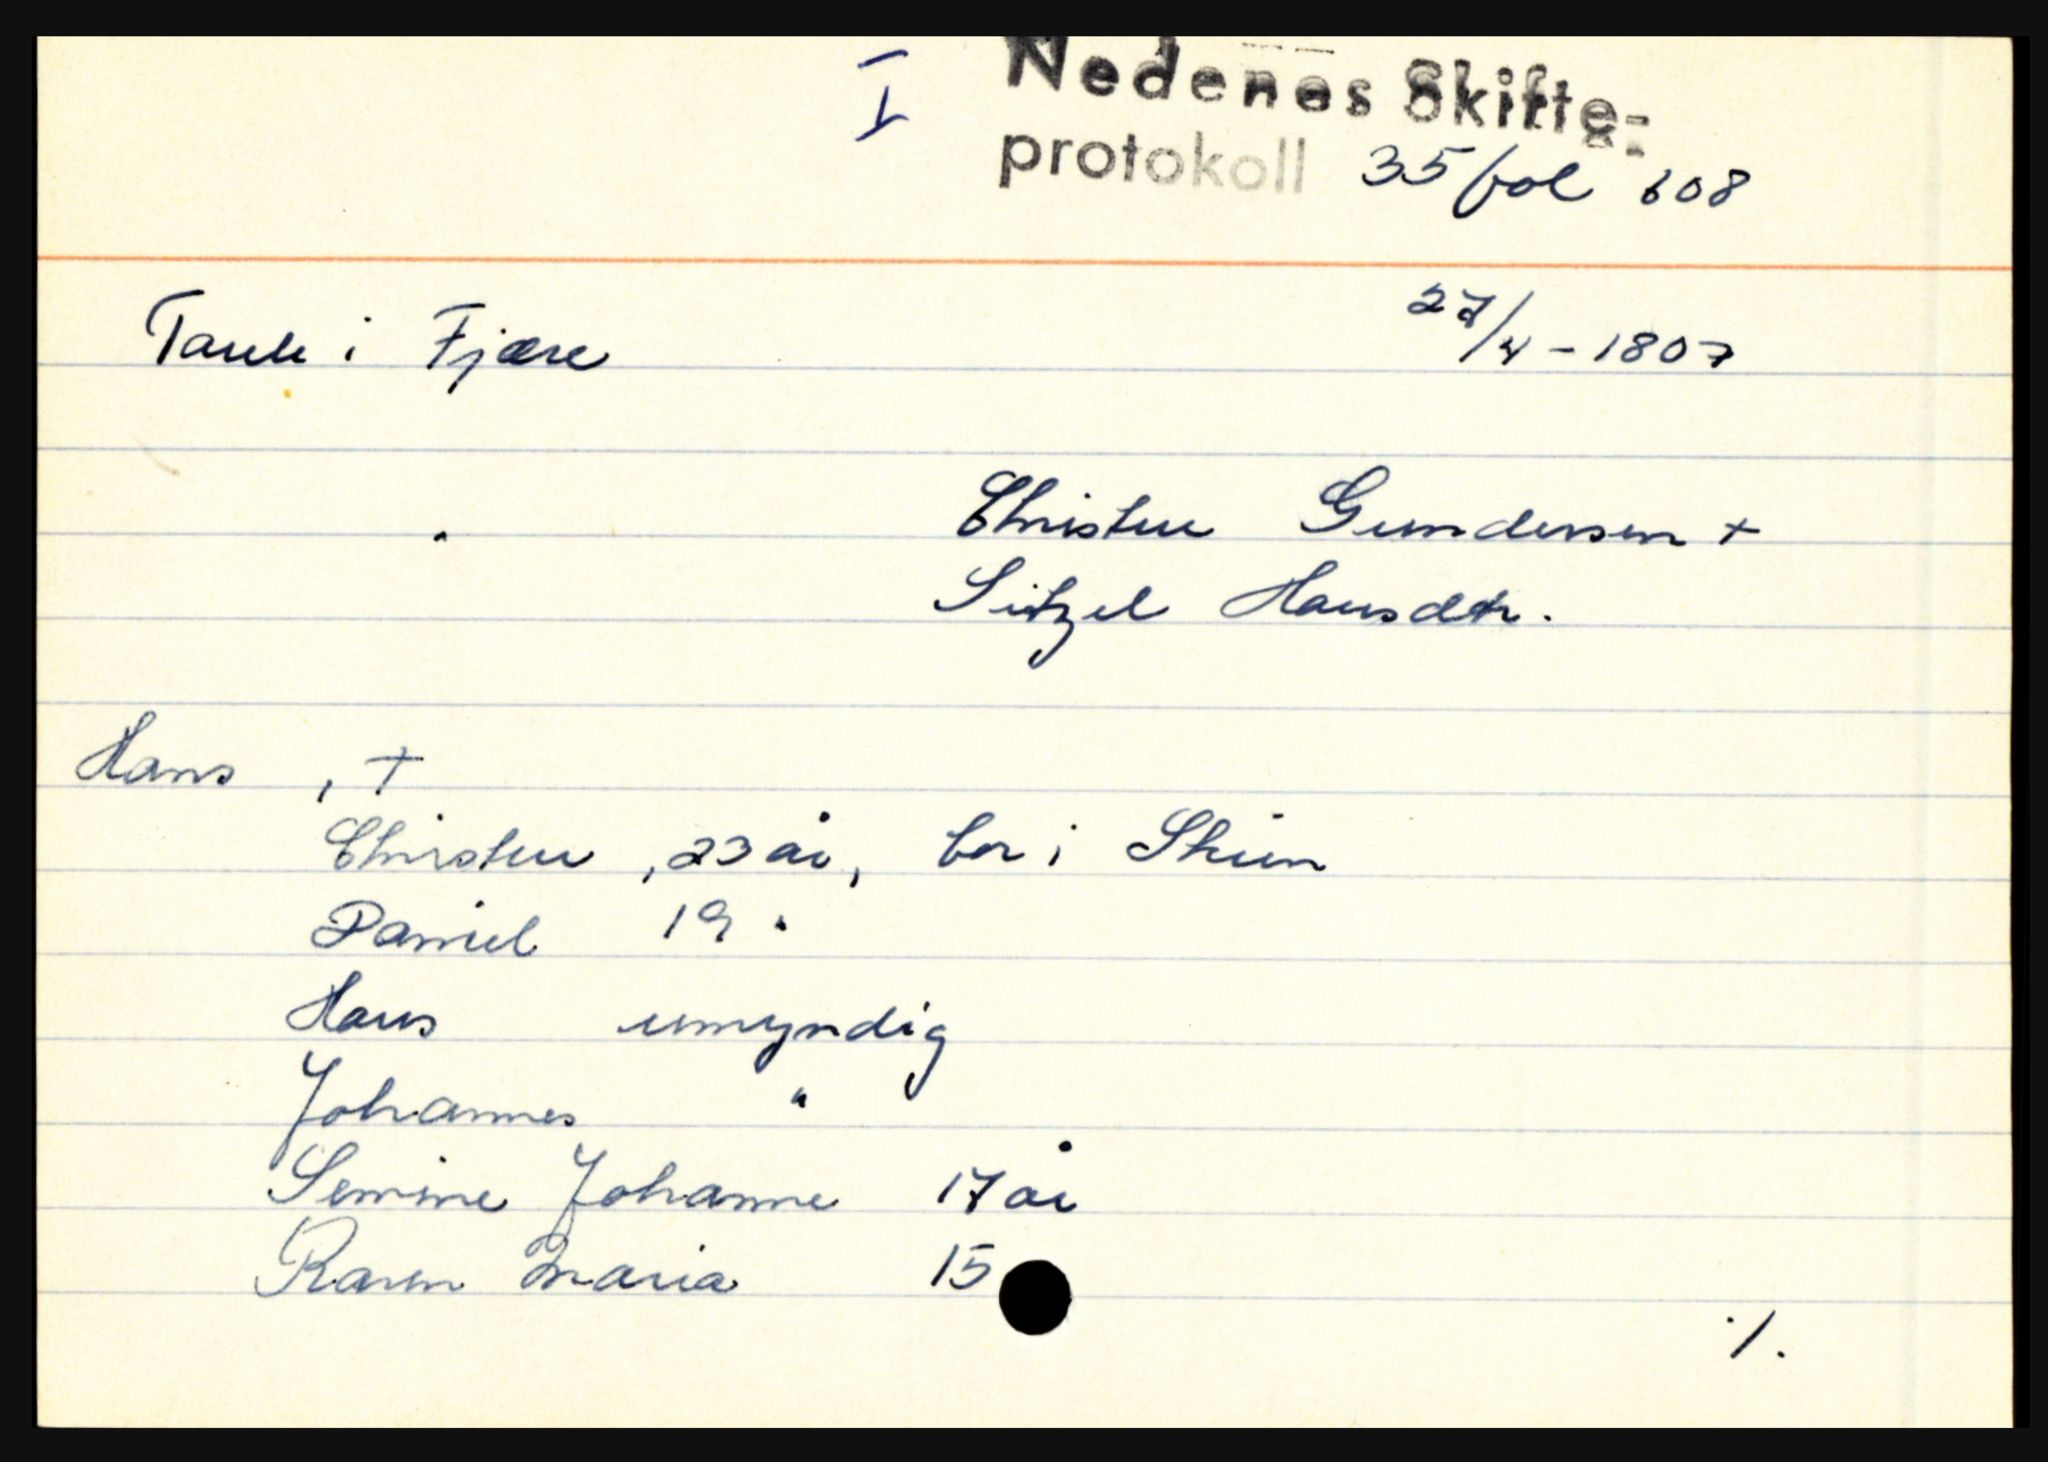 I
Nedenes Skifte-
protokoll 35 fol 608
i Fjære 27/4 - 1807
Christen Gundersen +
Sitzel Hansdtr.
Hans , +
Christen , 23 år, bor i Skien
Daniel 19 "
Hans umyndig
Johannes "
Semine Johanne 17 år
Karen Maria 15
./.